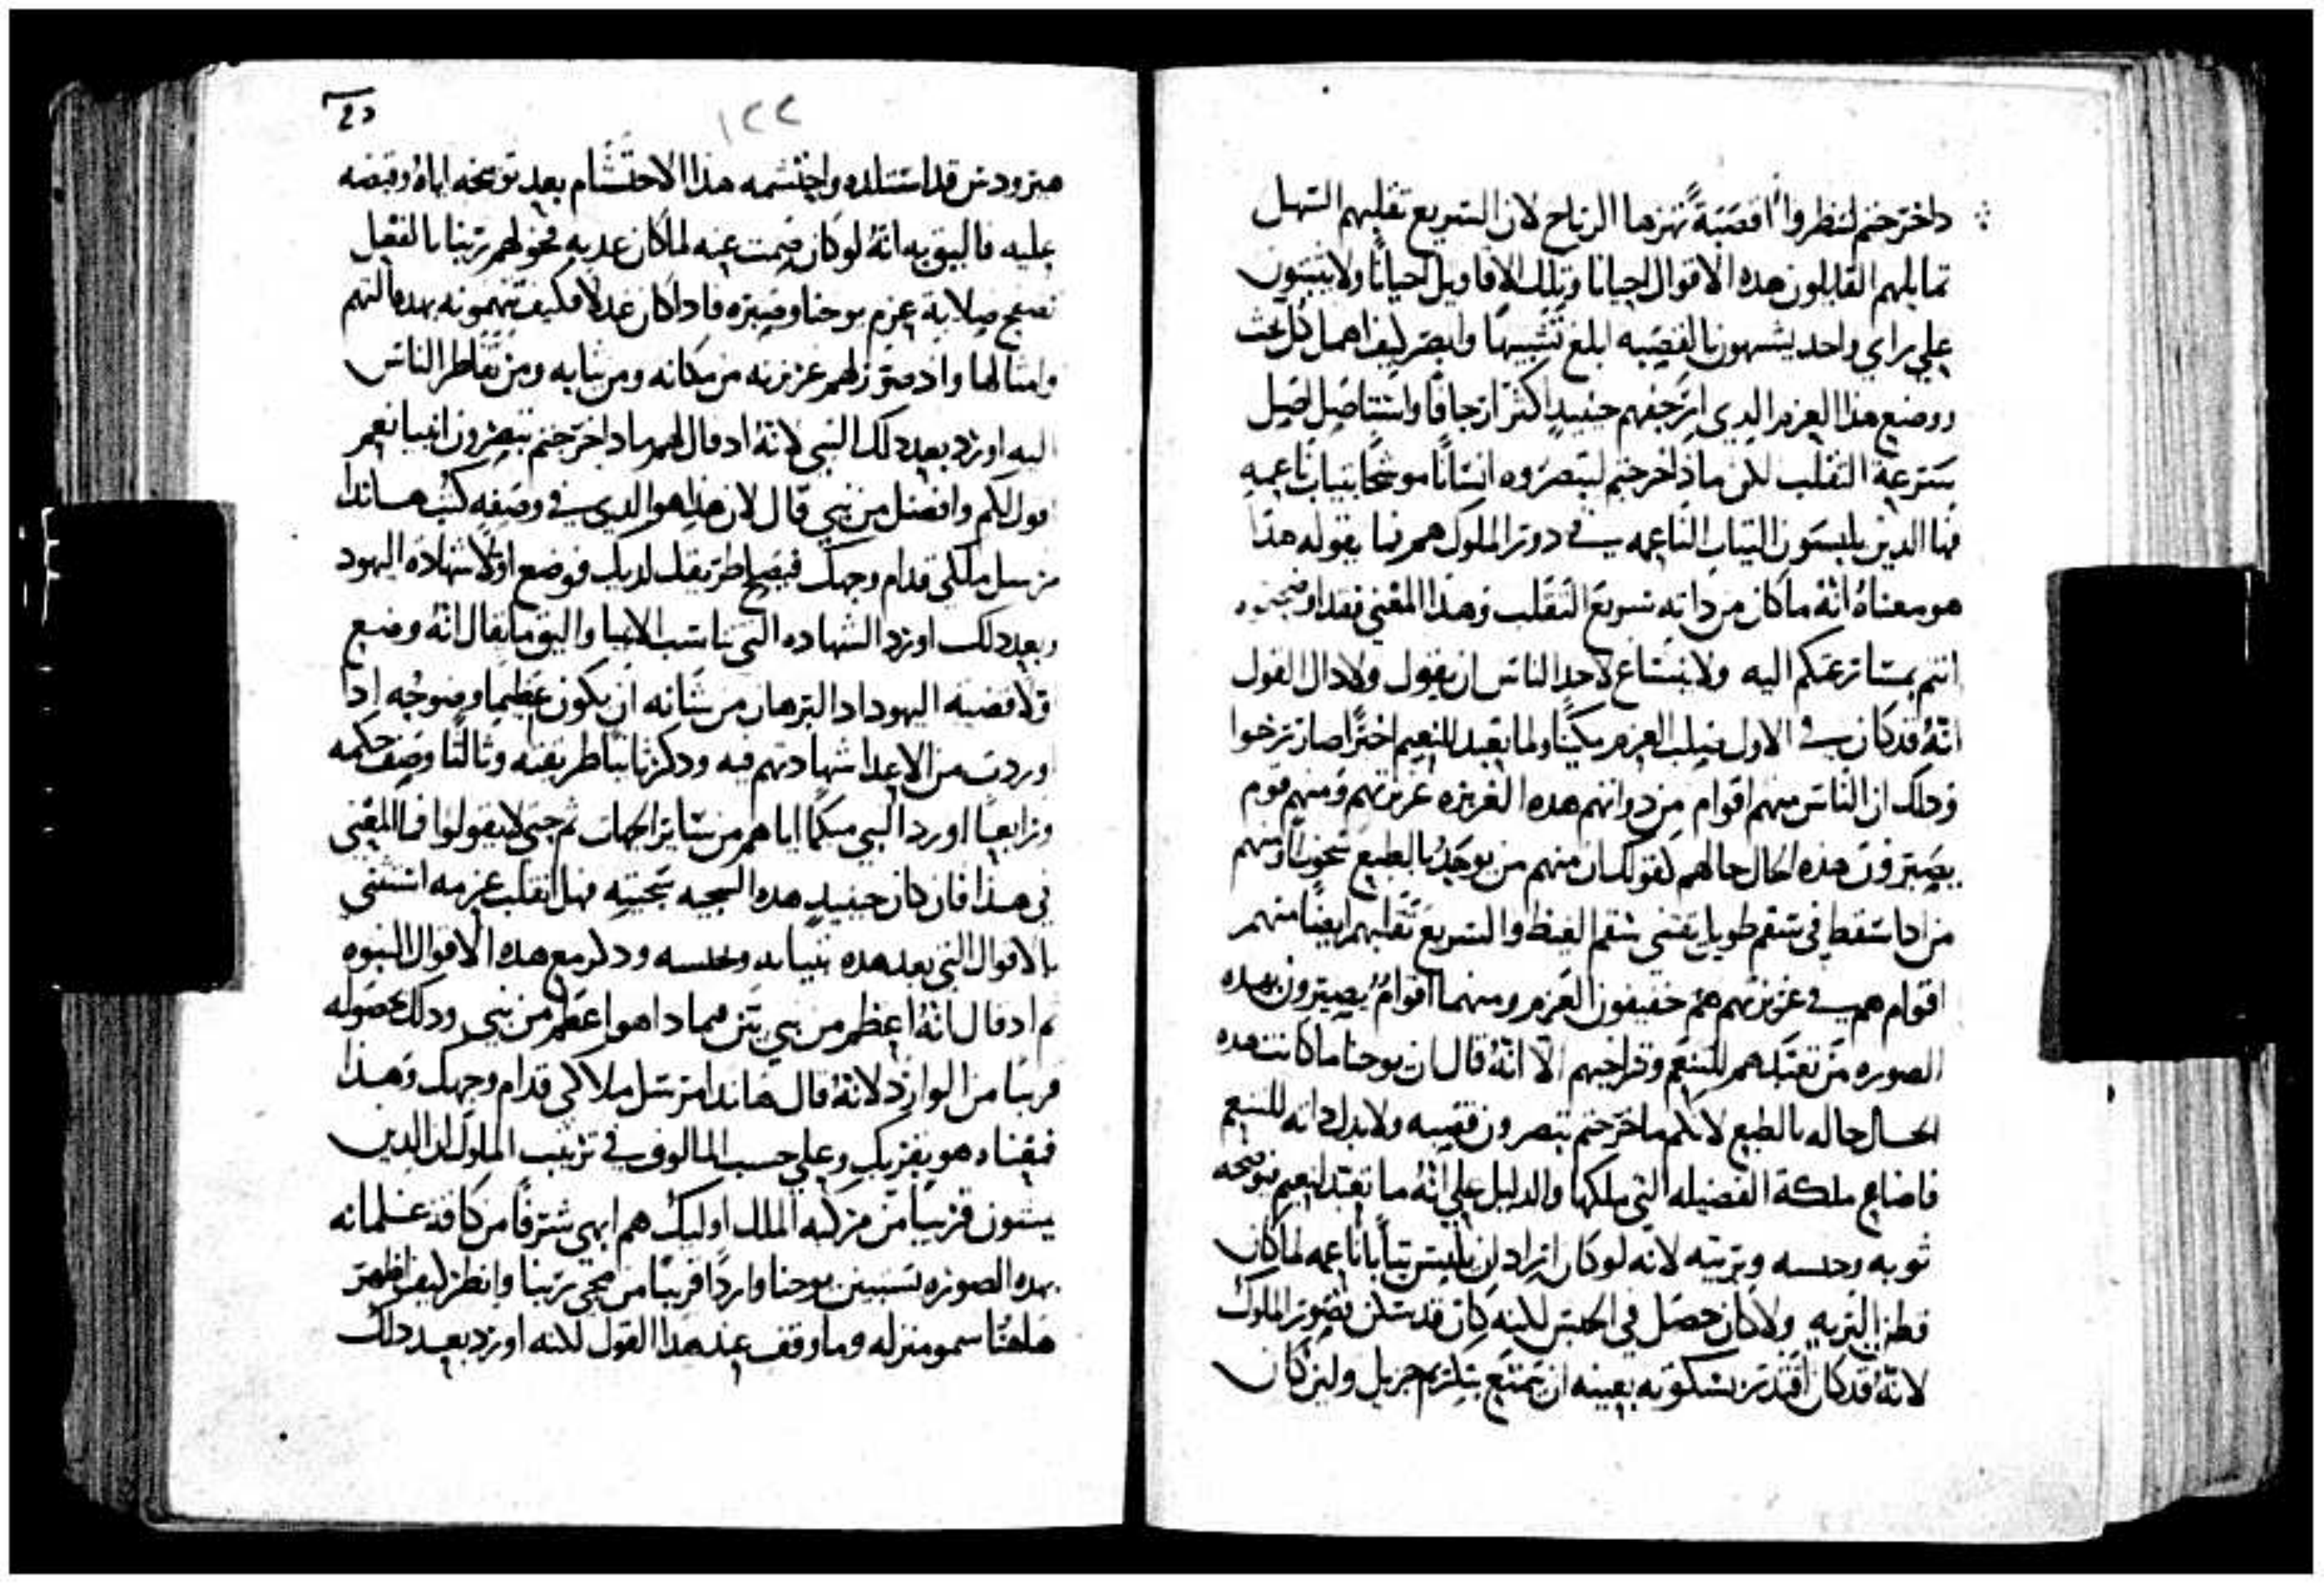 داخرجتم لتنظروا اقصبةً تهزها الرياح لان السريع تقلبهم السهل
تمايلهم القايلون هذه الاقوال احيانا وتلك الاقاويل احيانًا ولا يثبتون
علي راي واحد يشبهون بالقصبه ابلغ تشبيهًا وابصر كيف اهمل كل خبث
ووضع هذا العزم الدي ارجفهم حينيدٍ اكثر ارجافًا واستاصل اصل
سرعة التقلب لكن مادا خرجتم لتبصروه انسانًا موشحًا بتياب ناعمه
فها الدين يلبسون التياب الناعمه في دور الملوك هم فما يقوله هذا
هو معناهُ انهُ ما كان من داته سريع التقلب وهذا المعني فقد اوضحتموه
انتم بمسارعتكم اليه ولا ينساغ لاحد الناس ان يقول ولا دال القول
انهُ قد كان في الاول صلب العزم مكينًا ولما تعبد للتنعيم اخيرًا صار رخوا
ودلك ان الناس منهم اقوام من دواتهم هذه الغريزه غريزتهم ومنهم قوم
يصيرون هذه الحال حالهم كقولك ان منهم من يوجد بالطبع غضوبًا ومنهم
من اذا سقط في سقم طويل يقتني سقم الغيظ والسريع تقلبهم ايضًا منهم
اقوام هم في غريزتهم هم خفيفون العزم ومنهما اقوامٌ يصيرون بهذه
الصوره من تعبدهم للتنعم وتراخيهم الا انهُ قال ان يوحنا ما كانت هذه
الحال حاله بالطبع لانكم ما خرجتم تبصرون قصبه ولا بدل داته للتنعم
فاضاع ملكة الفضيله التي ملكها والدليل علي انهُ ما تعبد لنعيم توضحه
ثوبه وحبسه وبريته لانه لو كان اراد ان يلبس تيابًا ناعمه لما كان
قطن البريه ولا كان حصل في الحبس لكنه كان قد سكن قصور الملوك
لانهُ قد كان اقتدر بسكوته بعينه ان يتمتع بتكريم جزيل ولين كان
١٢٢
هيرودس قد استلده واحتشمه هذا الاحتشام بعد توبيخه اياهُ وقبضه
عليه فاليق به انهُ لو كان صمت عنه لما كان عدبه فخولهم ربنا بالفعل
تصحيح صلابة عزم يوحنا وصبره فادا كان عدلًا فكيف تتهمونه بهده التهم
وامثالها واد صور لهم غريزته من مكانه ومن تيابه ومن تقاطر الناس
اليه اورد بعد دلك النبي لانهُ اد قال لهم مادا خرجتم تبصرون انبيا نعم
اقول لكم وافضل من نبي قال لان هذا هو الدي في وصفه كتب هاندا
مرسل ملاكي قدام وجهك فيصلح طريقك لديك فوضع اولًا شهادة اليهود
وبعد دلك اورد الشهاده التي تناسب الانبيا واليق ما يقال انهُ وضع
اولًا قضية اليهود اد البرهان من شانه ان يكون عظيما وضوحُه ادا
وردت من الاعدا شهادتهم فيه ودكر ثانيًا طريقته وثالثًا وصف حكمه
ورابعًا اورد النبي مبكمًا اياهم من ساير الجهات ثم حتي لا يقولوا فما المعني
في هذا فان كان حينيدٍ هذه السجيه سجيته فهل انقلب عزمه استثني
بالاقوال التي بعد هده تيابه وحبسه ودكر مع هذه الاقوال النبوه
ثم اد قال انهُ اعظم من نبي بين بمادا هو اعظم من نبي ودلك حصوله
قريبًا من الوارد لانهُ قال هاندا مرسل ملاكي قدام وجهك وهذا
فمعناه هو بقربك وعلي حسب المالوف في ترتيب الملوك ان الدين
يمشون قريبًا من مركبة الملك اوليك هم ابهي شرفًا من كافة غلمانه
بهده الصوره نستبين يوحنا واردًا قريبًا من مجي ربنا وانظر كيف اظهر
هاهنا سمو منزله وما وقف عند هذا القول لكنه اورد بعد دلك